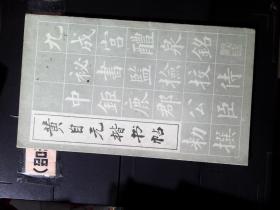 九成宫醴泉銘
秘書監檢校侍
中鉅鹿郡公臣
魏徵奉勑撰
黄自元楷书帖